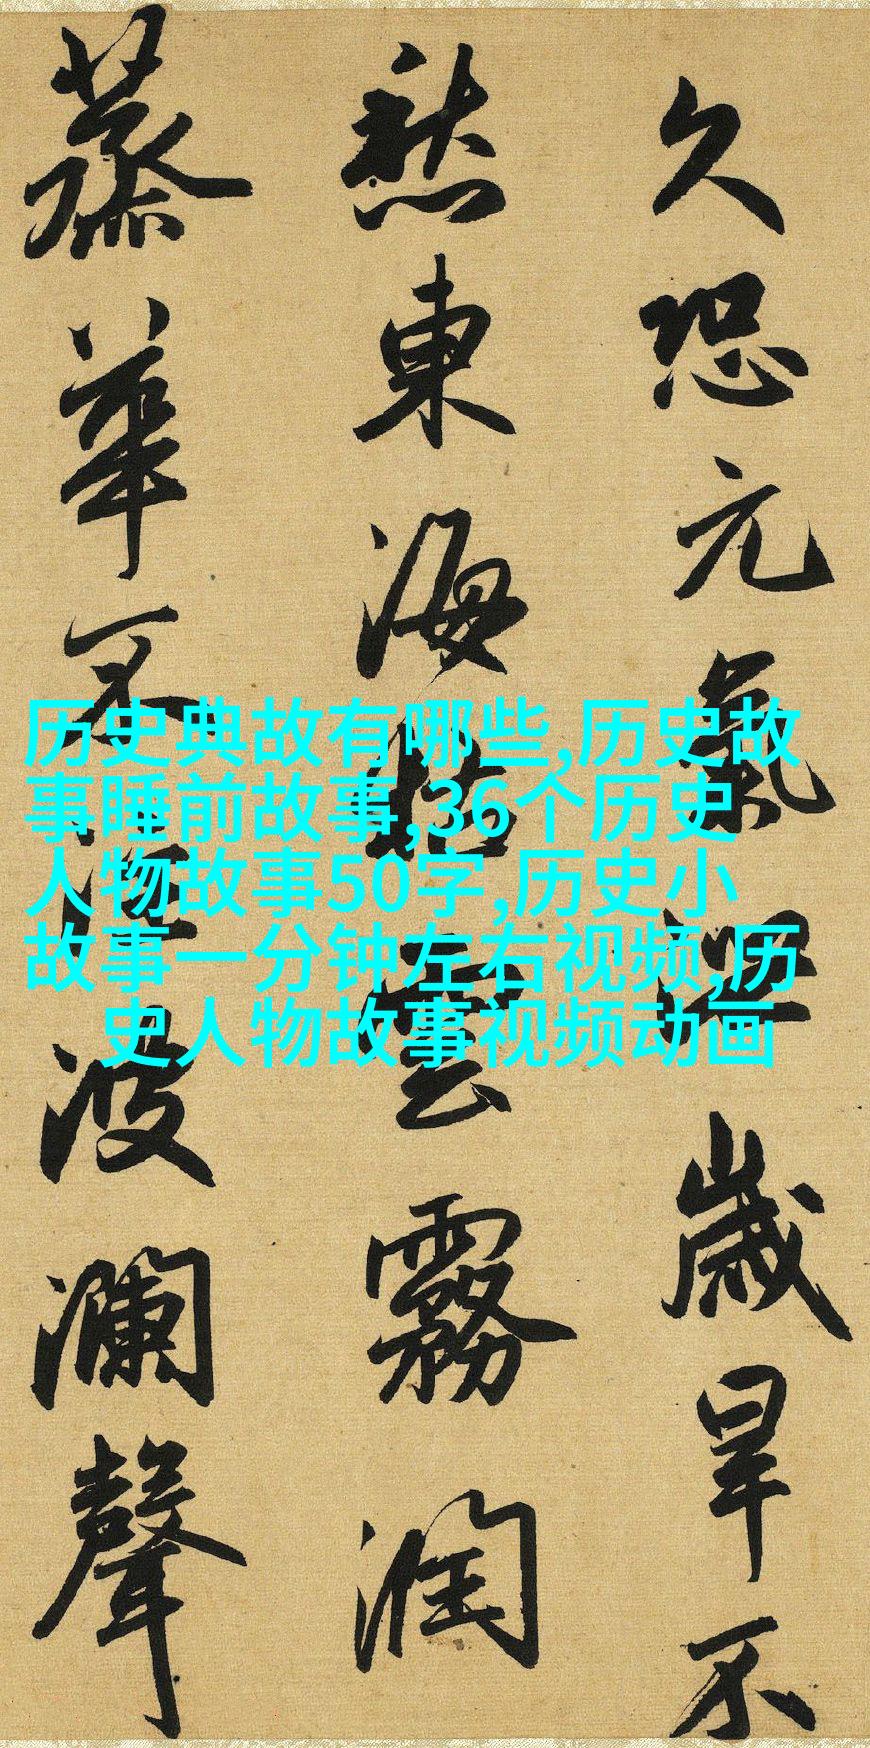 久恐元氣泄歲旱不
愁東海枯雲霧潤
蒸華不注波瀾聲
历史典故有哪些,历史故
事睡前故事,36个历史
人物故事50字,历史小
故事一分钟左右视频,历
史人物故事视频动画